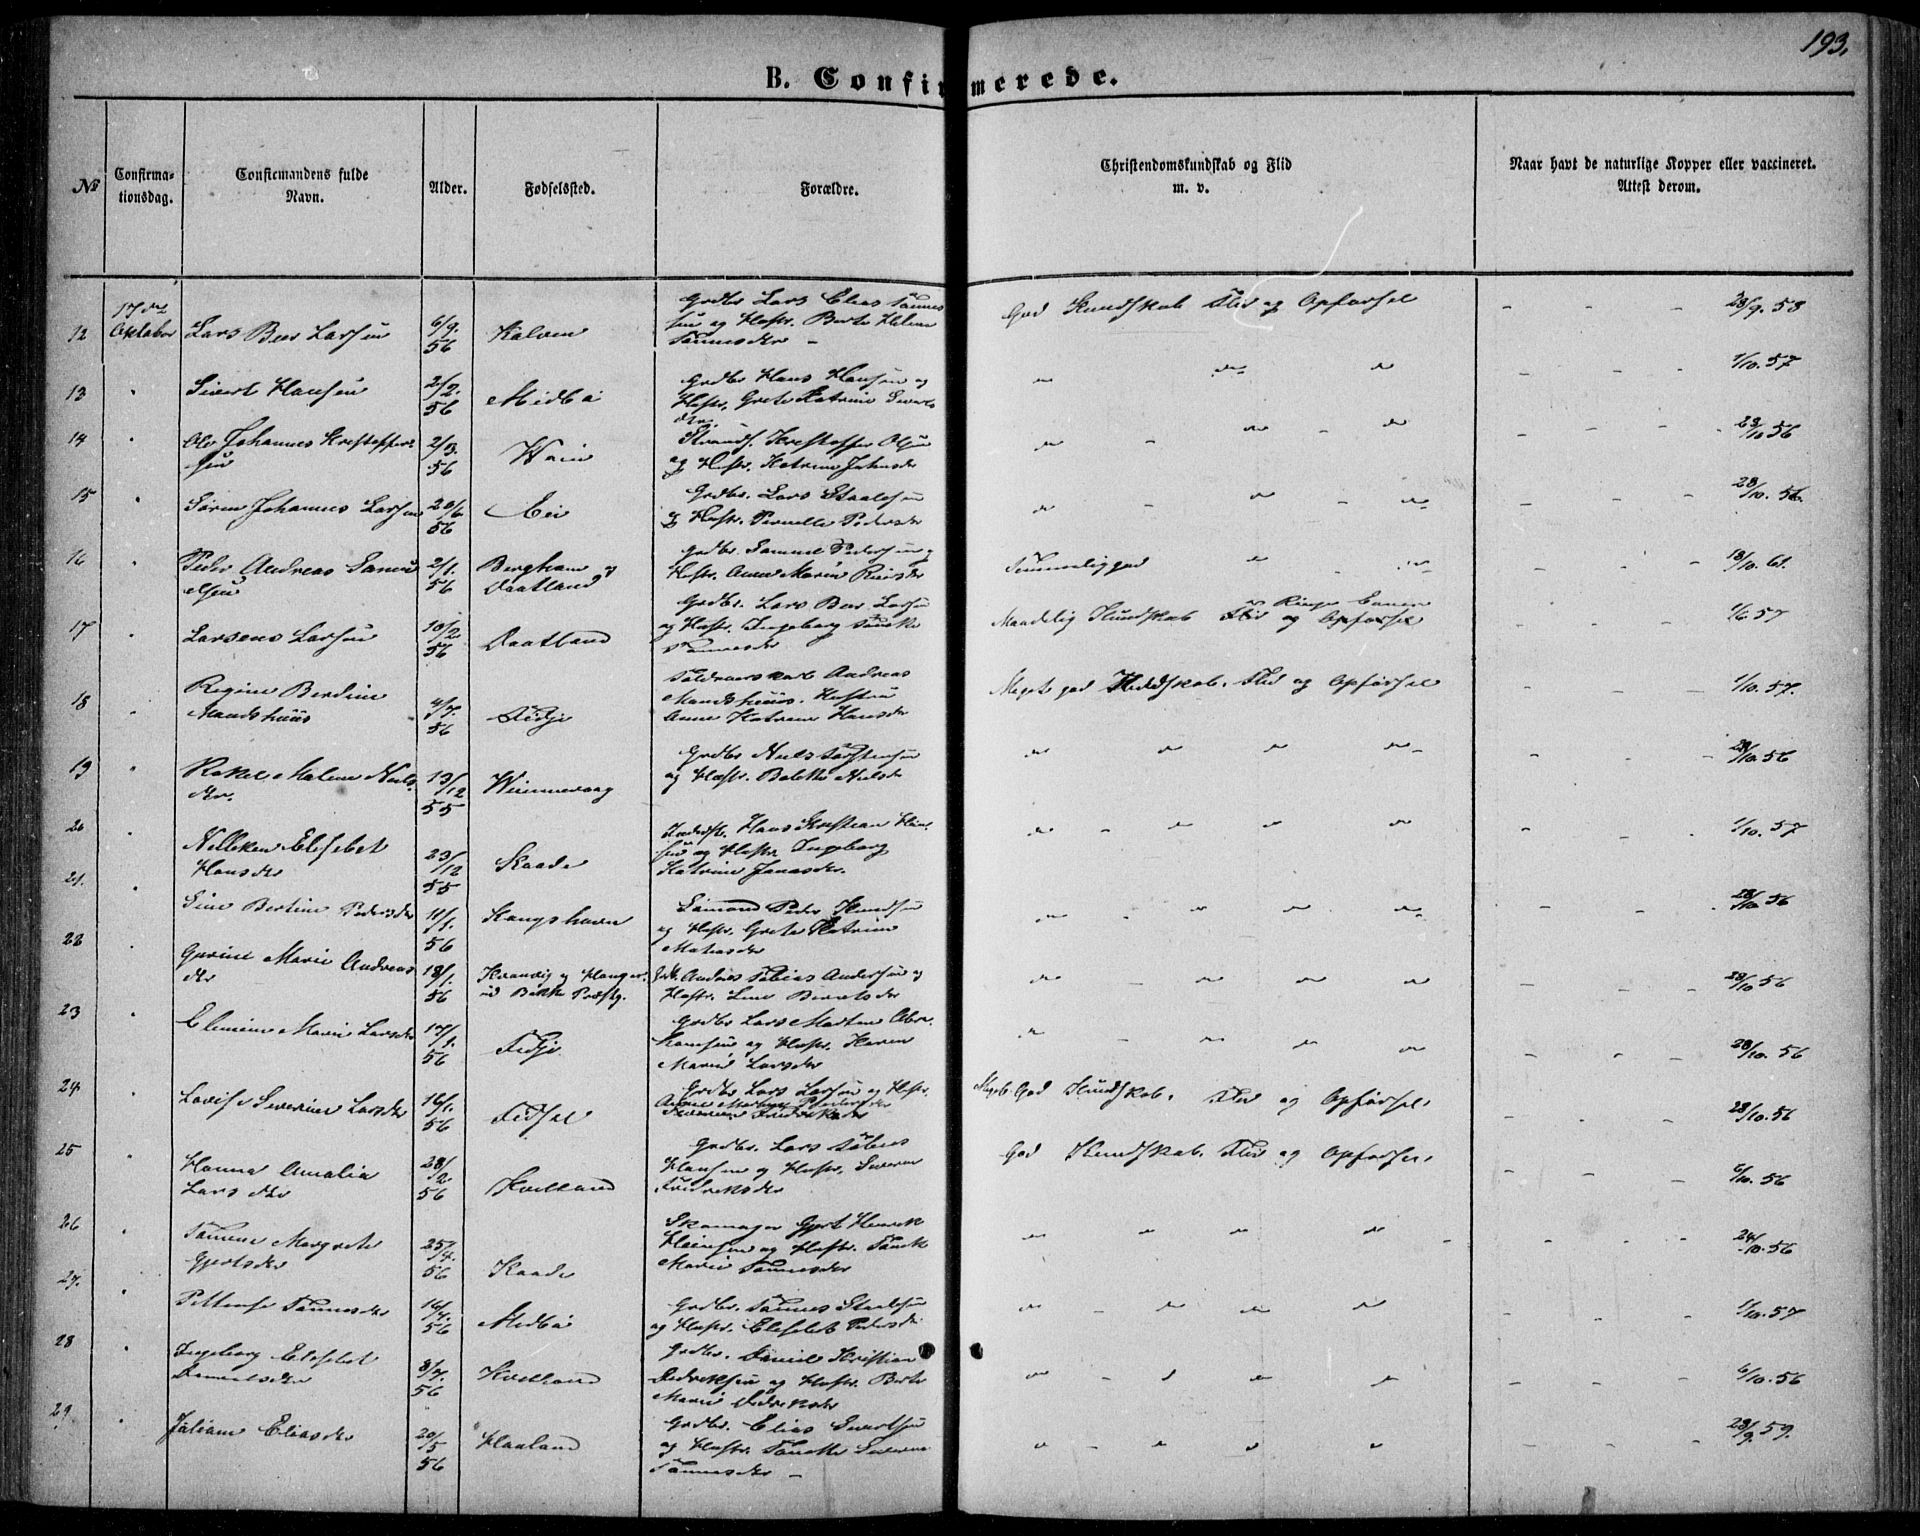 193.
B. Confirmerede.
№
Confirma-
tionsdag.
Confirmandens fulde
Navn.
Alder.
Fødselssted.
Forældre.
Christendomskundskab og Flid
m. v.
Naar havt de naturlige Kopper eller vaccineret.
Attest derom.
12
17de
Oktober
Lars Beer Larsen
6/9.
56
Kalven
Grdbr Lars Elias Tønnes
sen og Hustr. Berte Helene
Tønnesdtr -
God Kundskab Flid og Opførsel
28/9. 58
13
"
Sivert Hansen
2/2.
56
Midbø
Grdbr Hans Hansen og
Hustr. Grete Katrine Siverts
dtr.
1/10. 57
14
"
Ole Johannes Kristoffer-
sen
2/3.
56
Strands. Kristoffer Olsen
og Hustr. Katrine Johnsdtr
23/10 56
15
"
Søren Johannes Larsen
20/6
56
Eie
Grdbr. Lars Staalesen
og Hustr. Pernille Pedersdtr
28/10. 56.
16
Peder Andreas Samu
elsen
2/1.
56
Berghem og
Daatland
Grdbr. Samuel Pedersen og
Hustr. Anne Marie
Temmelig god
13/10. 61.
17
"
Larsens Larsen
10/2.
56
Daatland
Grdbr. Lars Beer Larsen
og Hustr. Ingeborg Tønette
Tønnesdtr
Maadelig Kundskab Flid og Opførsel
Ringe Evner
1/6 57
18
"
Regine Berdine
Mandshuus
4/7.
56
Fidje
Andreas
Mandshuus. Hustru
Anne Katrine Hansdtr
Meget god Kundskab. Flid og Opførsel
1/10. 57.
19
"
Rakel Malene Niels
dtr.
13/12
55
Grdbr Niels Torstensen
og Hustr. Bolette Nielsdtr
28/10 56
20
Nilleken Elisebet
Hansdtr
23/12
55
Kaade
Hans Kristian Hein
sen og Hustr Ingeborg
Katrine Jonasdtr.
1/10. 57
21.
Sine Bertine Pedersdtr
11/1.
56
Kongshavn
Sømand Peder Knudsen
og Hustr. Grete Katrine
Matiasdtr
28/10 56
22
Gurine Marie Andreas
dtr
18/1.
56
Kvanvig og Hanger
ved Bakke Præstg.
Grdb. Andreas Tobias Andersen og
Hustr. Lene Berntsdtr
28/10 56
23
"
Elenine Marie Larsdtr
17/1.
56
Fidje
Grdbr Lars Martin Abra-
hamsen og Hustr. Karen
Marie Larsdtr
28/10. 56
24
"
Lovise Severine Larsdtr
16/1.
56
Fidsel
Grdbr Lars Larsen og Hustr.
Meget God Kundskab. Flid og Opførsel.
28/10. 56
25
"
Hanna Amalia
Larsdtr
28/2.
56
Kvelland
Grdbr. Lars Tobias
Hansen og Hustr. Severine
Fredriksdtr
God Kundskab. Flid og Opførsel.
6/10. 56
26
"
Tønnine Margrete
Gjertsdtr
25/4.
56
Kaade
Skomager Gjert Henrik
Heinsen og Hustr. Tønette
Marie Tønnesdtr
24/10. 56
27.
"
Tønnesdtr
16/4.
56
Midbø
Grdbr. Tønnes Staalesen
og Hustr. Elisebet Pedersdtr
1/10. 57
28
"
Ingeborg Elisebet
Danielsdtr
3/7.
56
Kvelland
Grdbr. Daniel Kristian
Didriksen og Hustr. Berte
Marie Didriksdtr
6/10. 56
29
"
Juliane Eliasdtr
20/5
56
Haaland
Grdbr. Elias Sivertsen
og Hustr. Tønette Severine
Tønnesdtr -
28/9. 59.